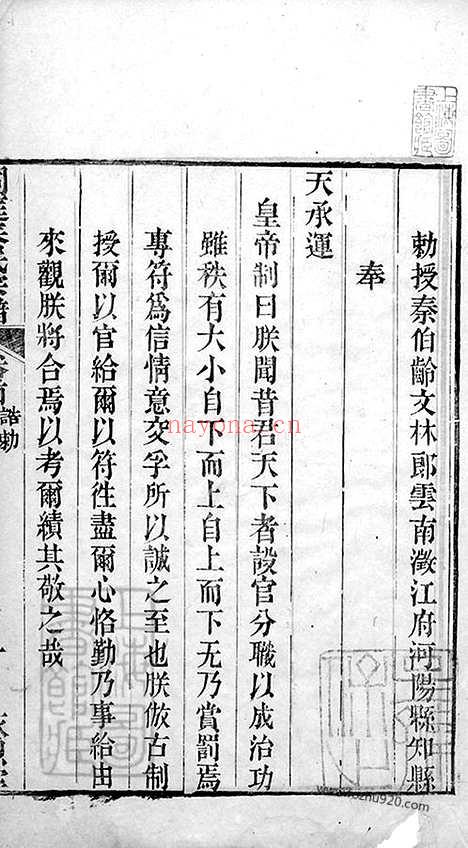 勅授秦伯齡文林郎雲南澂江府河陽縣知縣
奉
天承運
皇帝制曰朕聞昔君天下者設官分職以成治功
雖秩有大小自下而上自上而下无乃賞罰焉
專符爲信情意交孚所以誠之至也朕倣古制
授爾以官給爾以符徃盡爾心恪勤乃事給由
來觀朕將合焉以考爾績其敬之哉
誥勅
nayona.cn